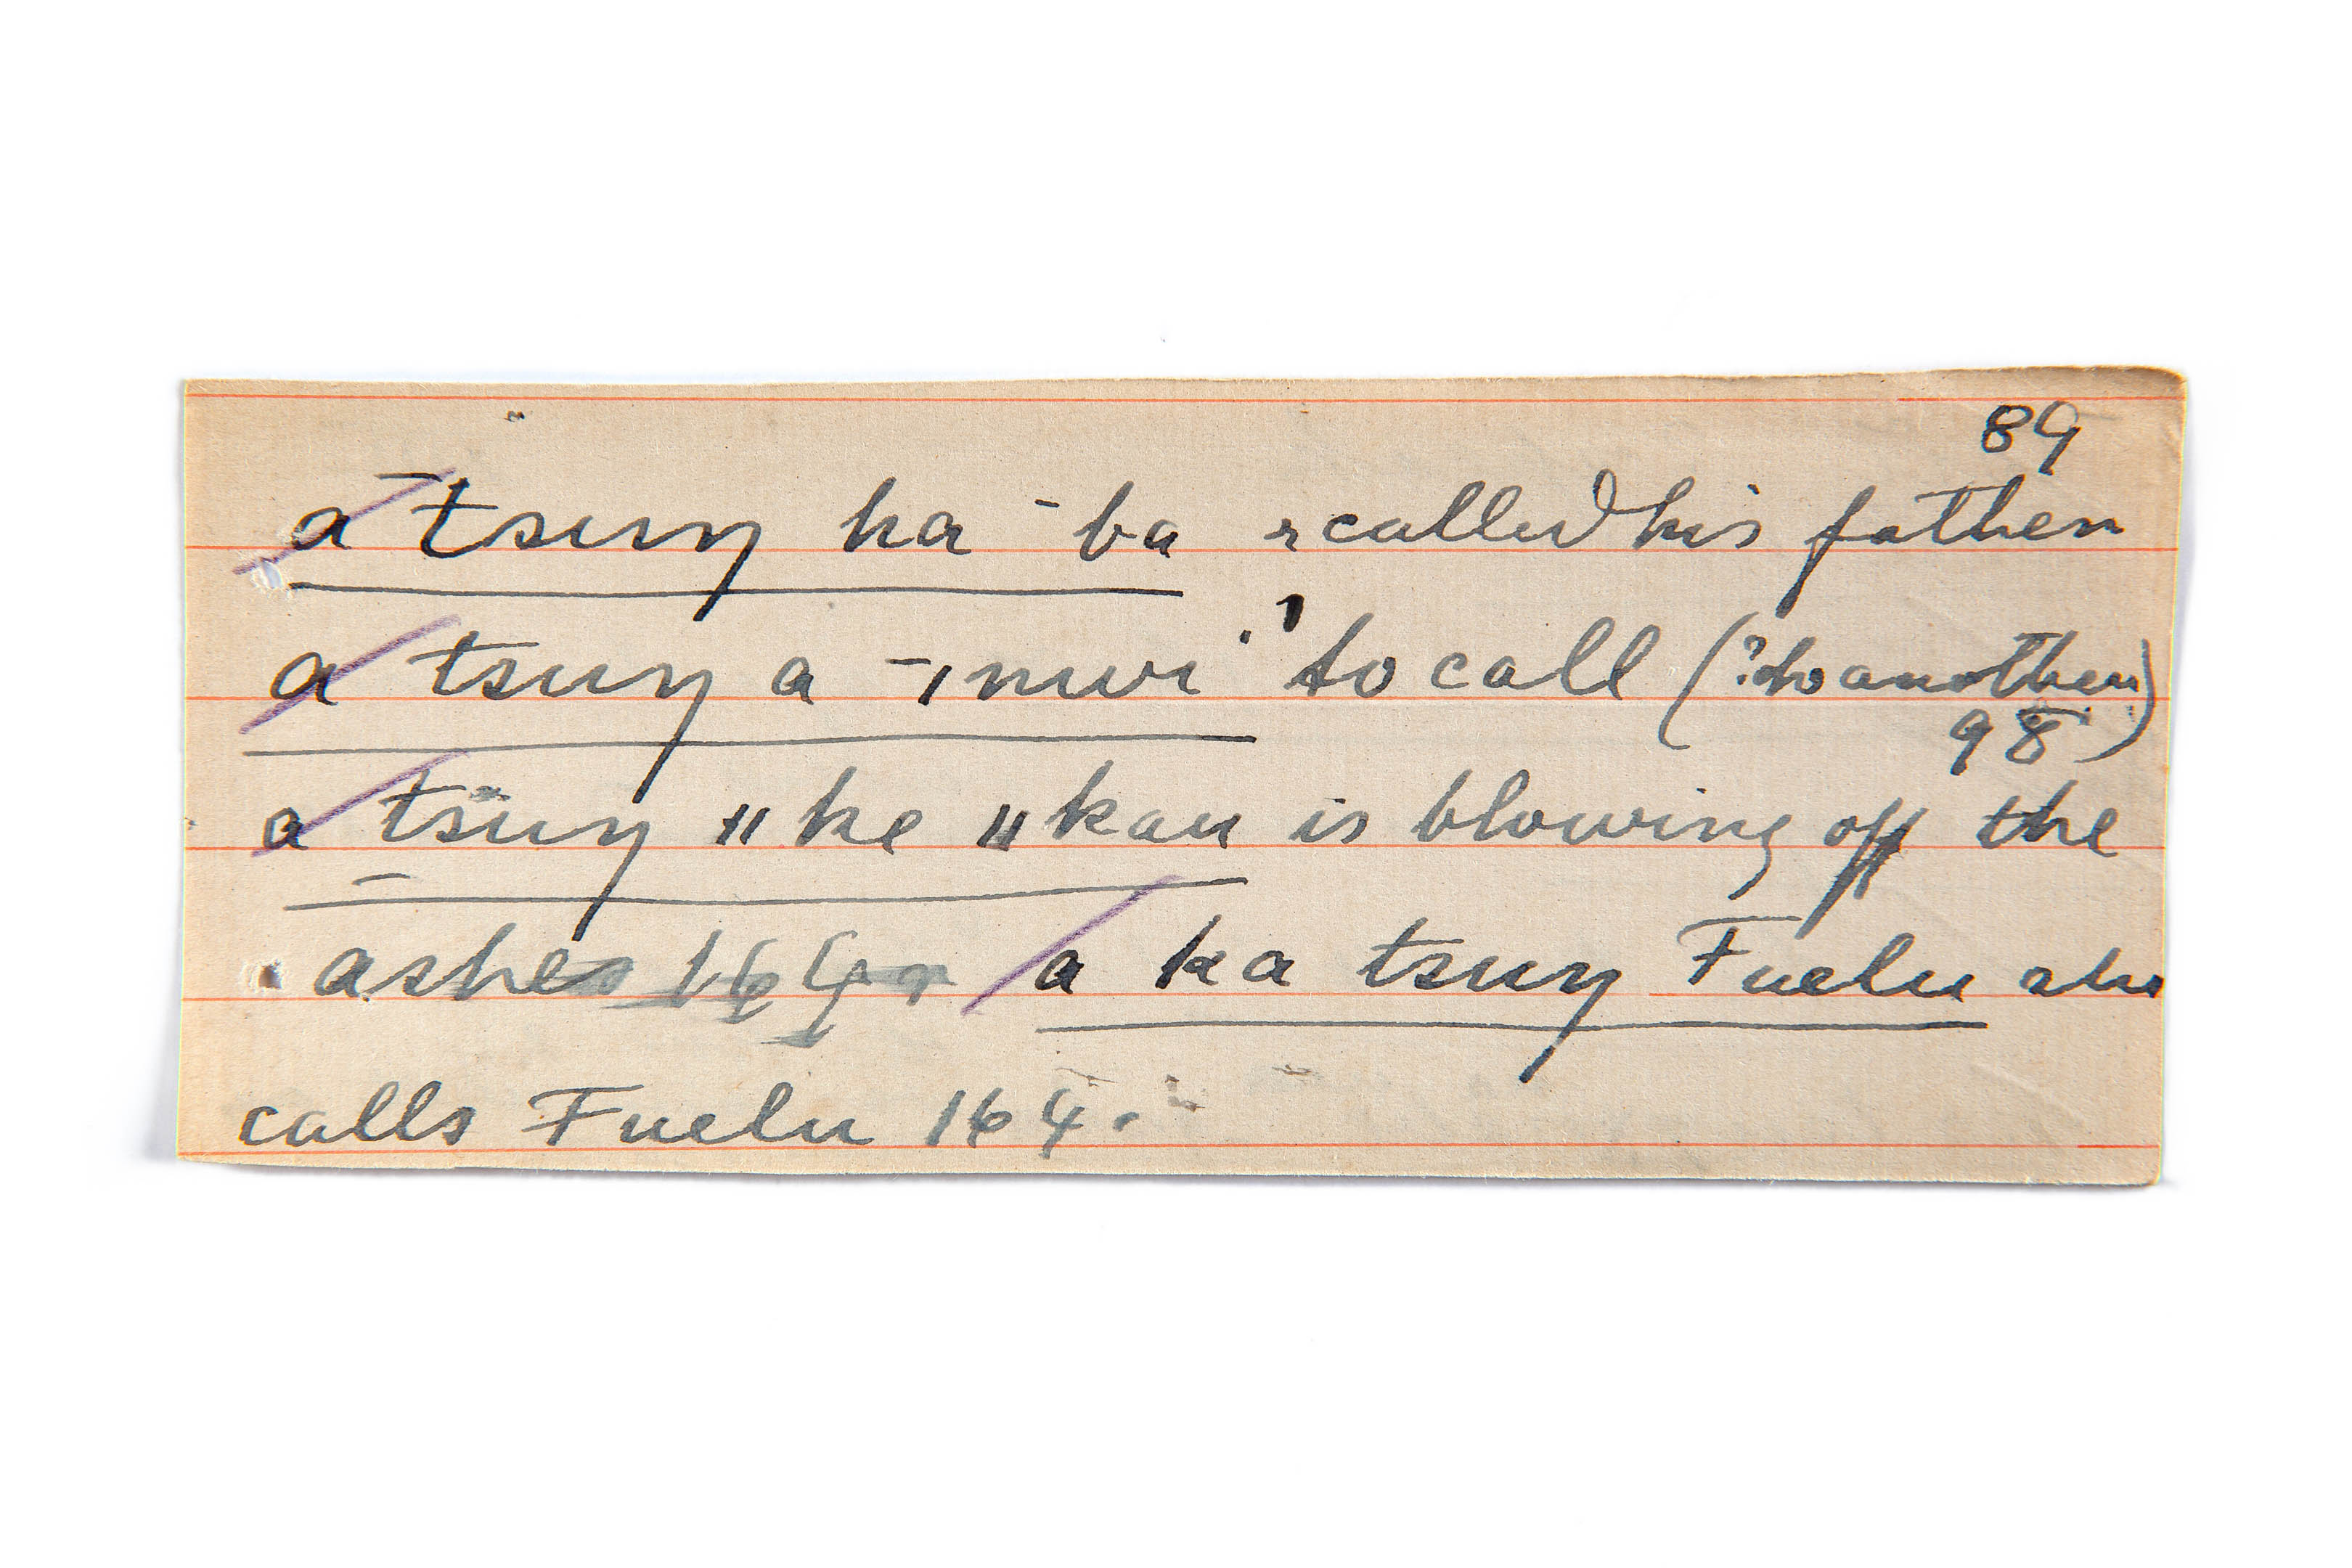 89
a ̄tsuŋ ha ̄ba called his father
a tsuŋ a ̄ˌmwi to call (? to another)
98
a tsuŋ " he " kau is blowing off the
ashes 164. a ka tsuŋ Fuelu she
calls Fuelu 164.